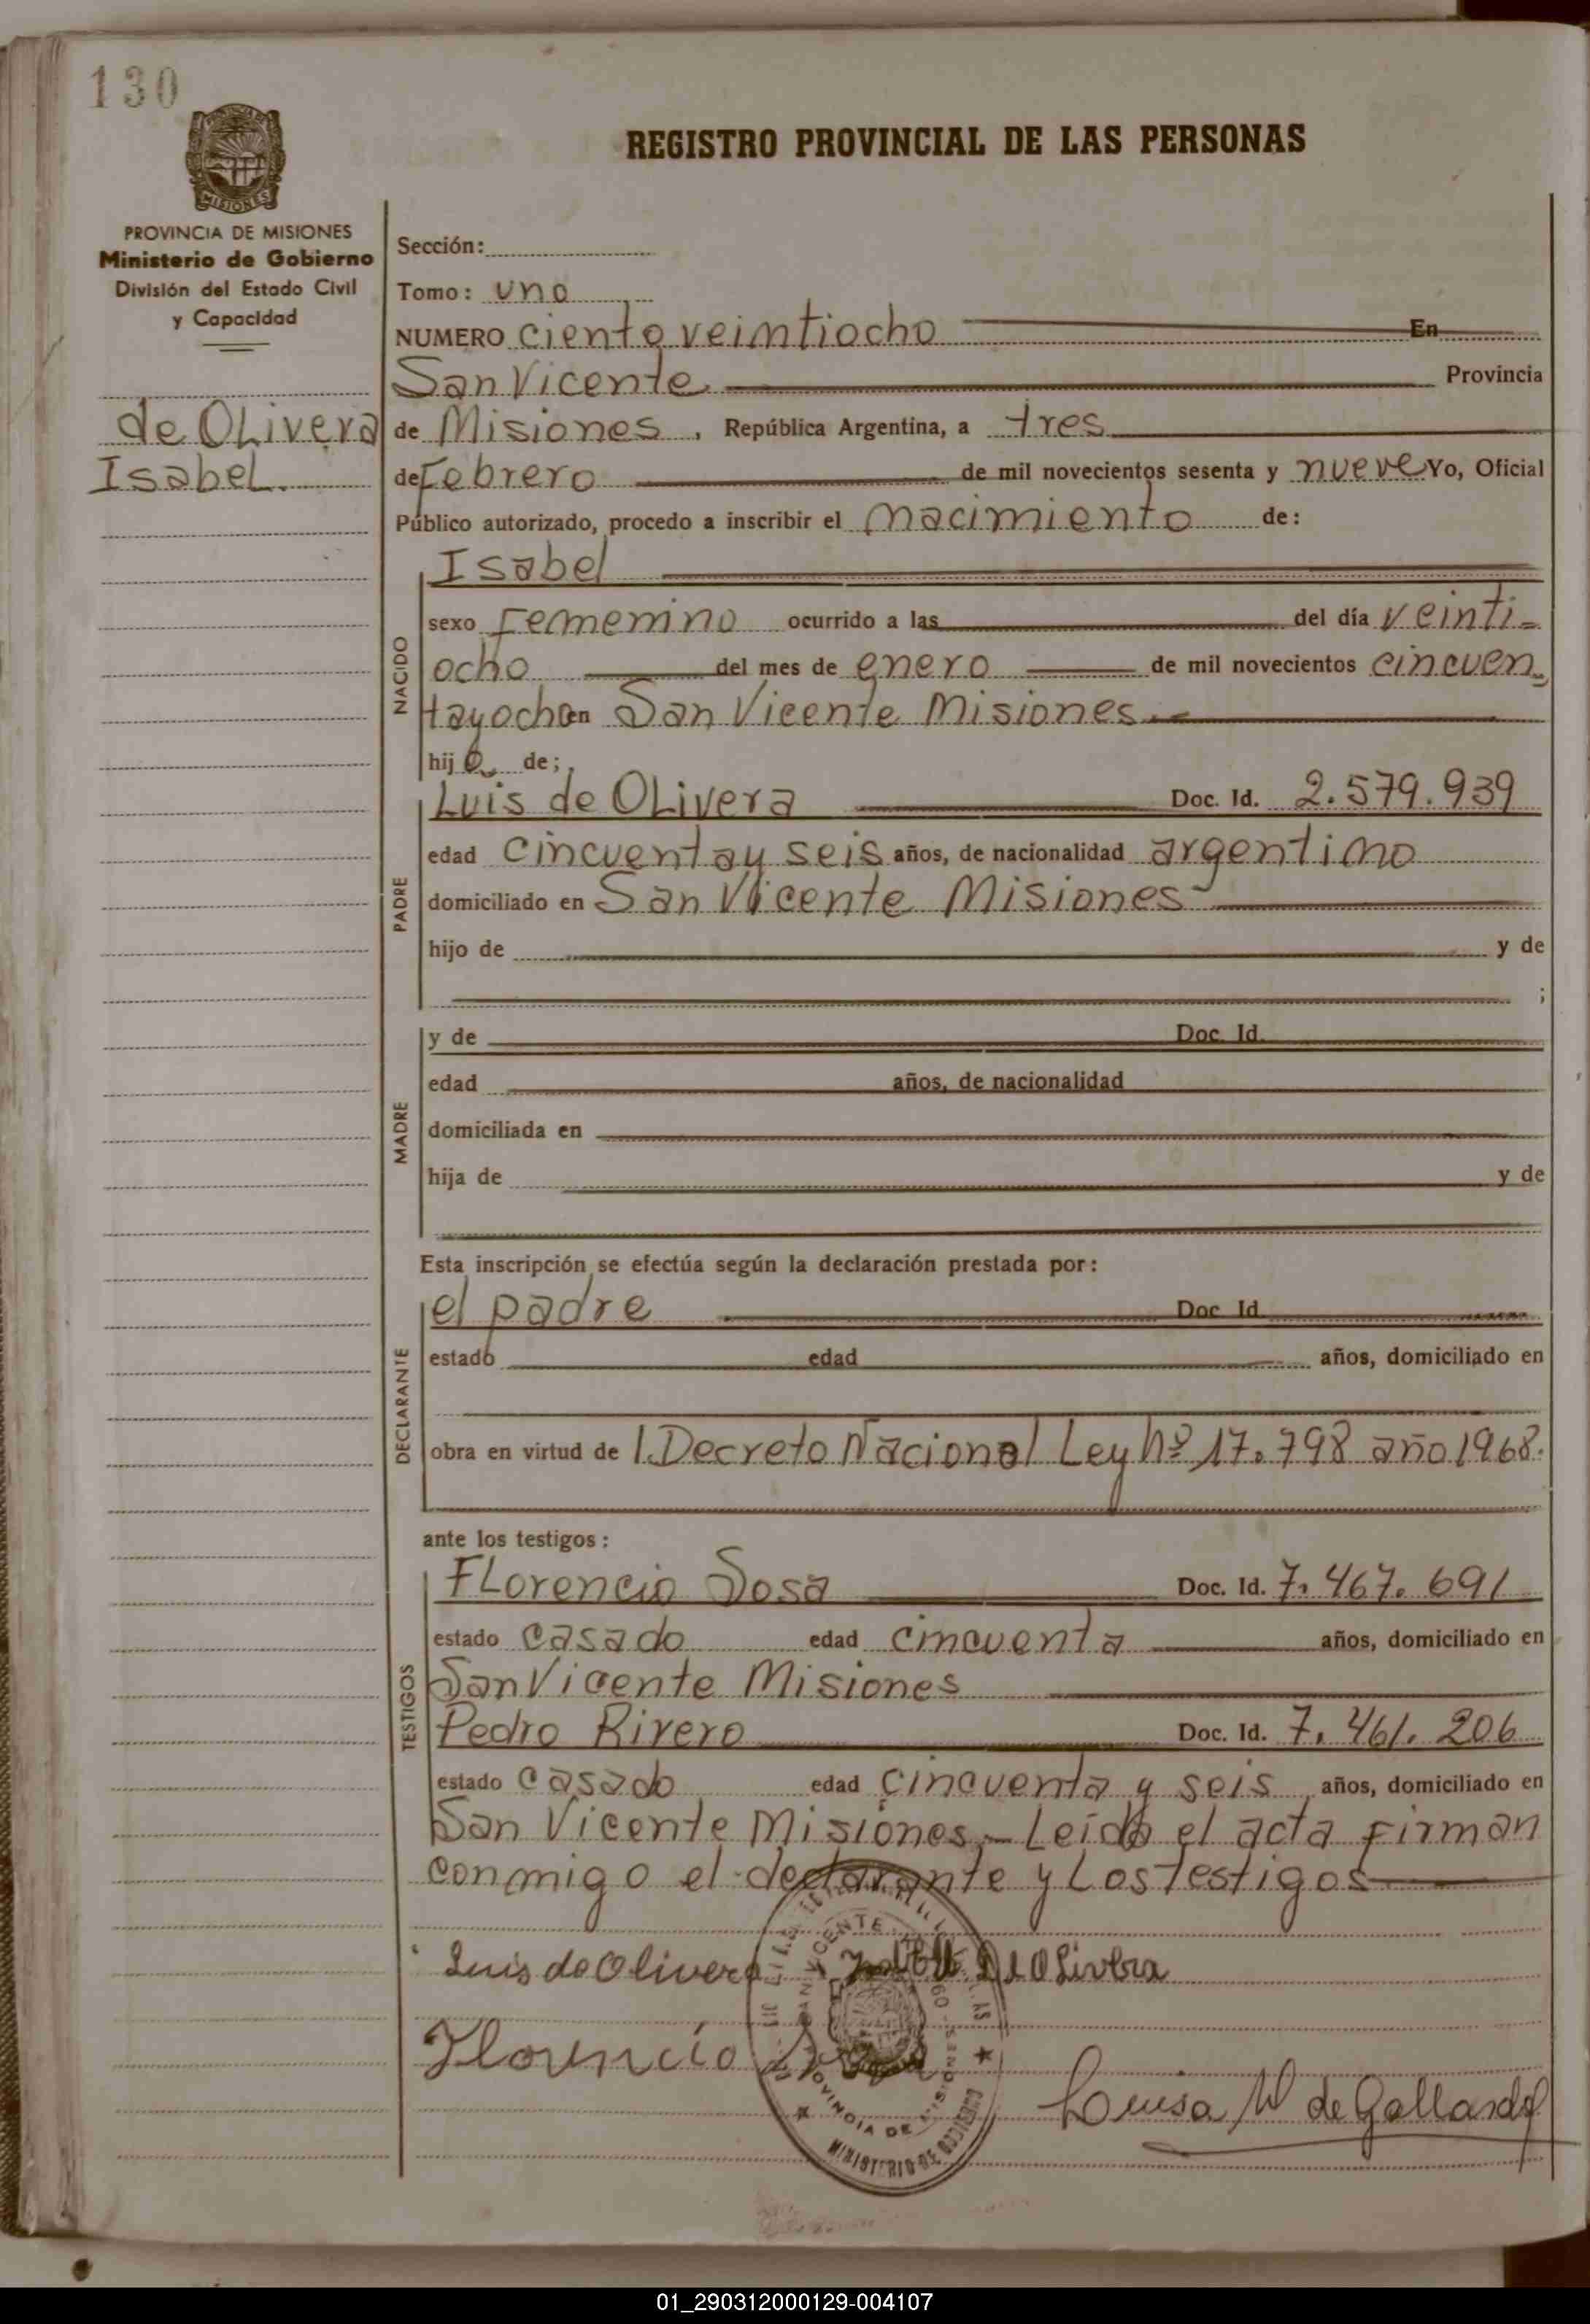 130
REGISTRO PROVINCIAL DE LAS PERSONAS
MISIONES
PROVINCIA DE MISIONES
Ministerio de Gobierno
División del Estado Civil
y Capacidad
de OLivera
Isabel.
Sección:
Tomo: uno
NUMERO ciento veintiocho En
San Vicente Provincia
de Misiones, República Argentina, a tres
de Febrero de mil novecientos sesenta y nueve Yo, Oficial
Público autorizado, procedo a inscribir el nacimiento de:
NACIDO
Isabel
sexo Femenino ocurrido a las del día veinti-
ocho del mes de enero de mil novecientos cincuen
tayocho en San Vicente Misiones.-
hija de;
PADRE
Luis de OLivera Doc. Id. 2.579.939
edad cincuentay seis años, de nacionalidad argentino
domiciliado en San Vicente Misiones
hijo de y de
;
MADRE
y de Doc. Id.
edad años, de nacionalidad
domiciliada en
hija de y de
Esta inscripción se efectúa según la declaración prestada por:
DECLARANTE
el padre Doc Id.
estado edad años, domiciliado en
obra en virtud de l.Decreto Nacional Ley Nº 17.798 año 1968.
ante los testigos:
TESTIGOS
FLorencio Sosa Doc. Id. 7.467.691
estado casado edad cincuenta años, domiciliado en
San Vicente Misiones
Pedro Rivero Doc. Id. 7.461.206
estado casado edad cincuenta y seis años, domiciliado en
San Vicente Misiones.- Leída el acta firman
conmigo el declarante y Los Testigos
Luis de Olivera
Florencio
Luisa W de Gallardo
PROVINCIA DE MISIONES
MINISTERIO DE GOBIERNO
01_290312000129-004107